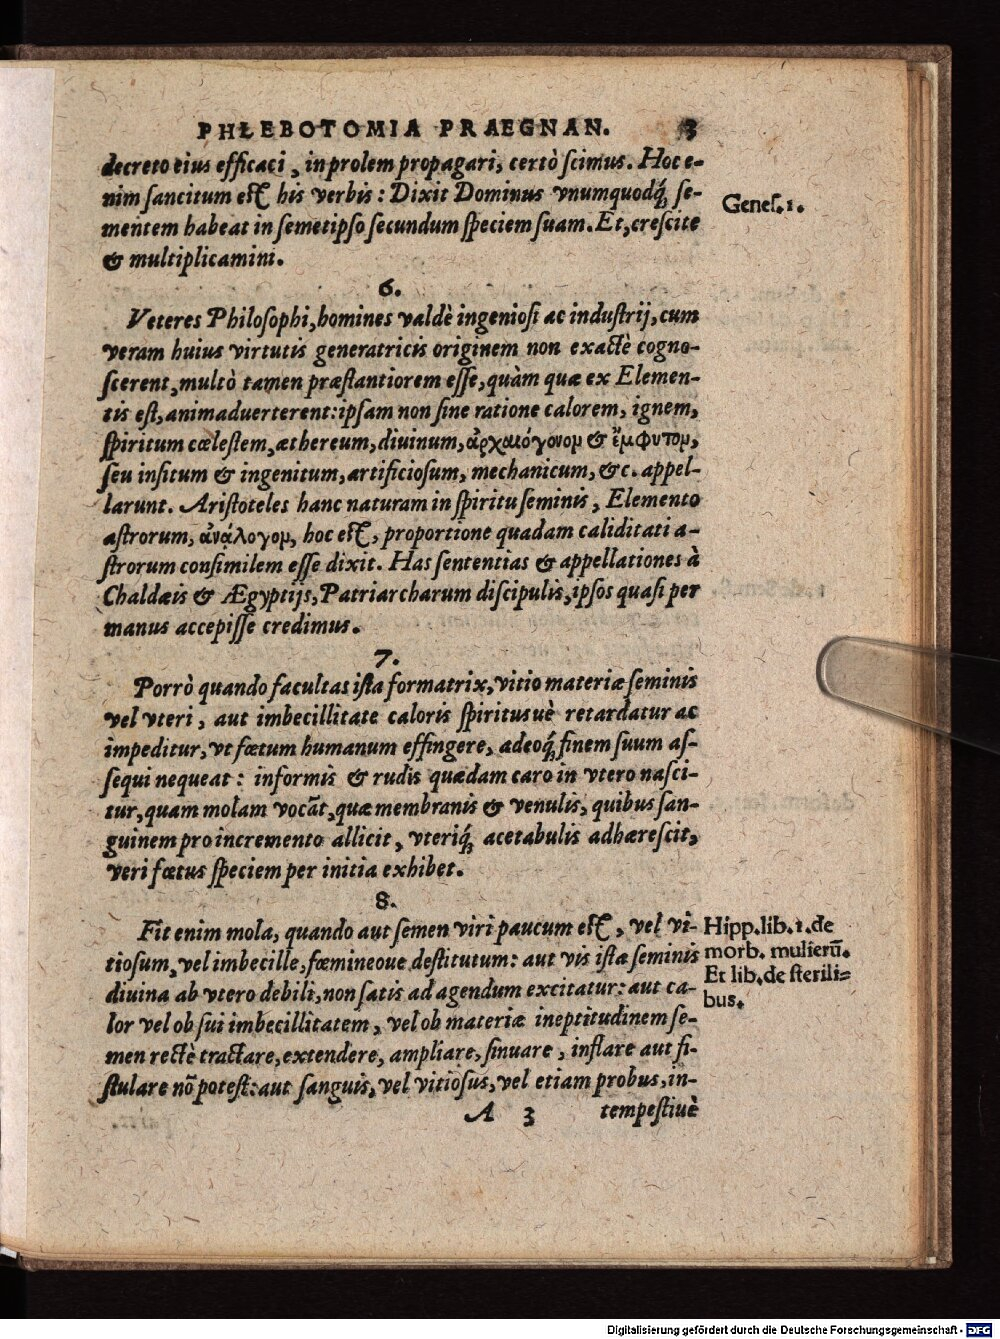 PHLEBOTOMIA PRAEGNAN. 3
decreto eius efficaci, in prolem propagari, certò scimus. Hoc e-
nim sancitum est his verbis: Dixit Dominus vnumquodq́; se-
mentem habeat in semetipso secundum speciem suam. Et, crescite
& multiplicamini.
Genes. 1.
6.
Veteres Philosophi, homines valdè ingeniosi ac industrij, cum
veram huius virtutis generatricis originem non exactè cogno-
scerent, multò tamen præstantiorem esse, quàm quæ ex Elemen-
tis est, animaduerterent: ipsam non sine ratione calorem, ignem,
spiritum cœlestem, æthereum, diuinum, ἀρχαιόγονομ & ἔμφυτομ,
seu insitum & ingenitum, artificiosum, mechanicum, &c. appel-
larunt. Aristoteles hanc naturam in spiritu seminis, Elemento
astrorum, ἀνάλογομ, hoc est, proportione quadam caliditati a-
strorum consimilem esse dixit. Has sententias & appellationes à
Chaldæis & Ægyptijs, Patriarcharum discipulis, ipsos quasi per
manus accepisse credimus.
7.
Porrò quando facultas ista formatrix, vitio materiæ seminis
vel vteri, aut imbecillitate caloris spiritusuè retardatur ac
impeditur, vt fœtum humanum effingere, adeoq́; finem suum as-
sequi nequeat: informis & rudis quædam caro in vtero nasci-
tur, quam molam vocāt, quæ membranis & venulis, quibus san-
guinem pro incremento allicit, vteriq́; acetabulis adhærescit,
veri fœtus speciem per initia exhibet.
8.
Fit enim mola, quando aut semen viri paucum est, vel vi-
tiosum, vel imbecille, fœmineoue destitutum: aut vis ista seminis
diuina ab vtero debili, non satis ad agendum excitatur: aut ca-
lor vel ob sui imbecillitatem, vel ob materiæ ineptitudinem se-
men rectè tractare, extendere, ampliare, sinuare, inflare aut fi-
stulare nō potest: aut sanguis, vel vitiosus, vel etiam probus, in-
Hipp. lib. 1. de
morb. mulierū.
Et lib. de sterili=
bus.
A 3 tempestiuè
Digitalisierung gefördert durch die Deutsche Forschungsgemeinschaft - DFG